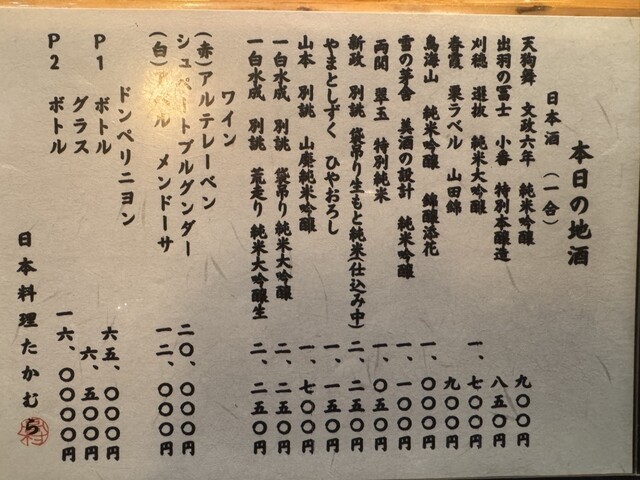 本日の地酒
日本酒 (一合)
天狗舞 文政六年 純米吟醸 九〇〇円
出羽の冨士 小番 特別本醸造 八五〇円
刈穂 選抜 純米大吟醸 一、七〇〇円
春霞 栗ラベル 山田錦 九〇〇円
鳥海山 純米吟醸 錦醸添花 一、〇〇〇円
雪の茅舎 美酒の設計 純米吟醸 一、一〇〇円
両関 翠玉 特別純米 一、〇五〇円
新政 別誂 袋吊り生もと純米(仕込み中) 二、二五〇円
やまとしずく ひやおろし 一、一五〇円
山本 別誂 山廃純米吟醸 一、七〇〇円
一白水成 別誂 袋吊り純米大吟醸 二、二五〇円
一白水成 別誂 荒走り純米大吟醸生 二、二五〇円
ワイン
(赤)アルテレーベン
シュペートブルグンダー 二〇、〇〇〇円
(白) メンドーサ 一二、〇〇〇円
ドンペリニヨン
P1 ボトル 六五、〇〇〇円
グラス 六、五〇〇円
P2 ボトル 一六、〇〇〇〇円
日本料理たかむら